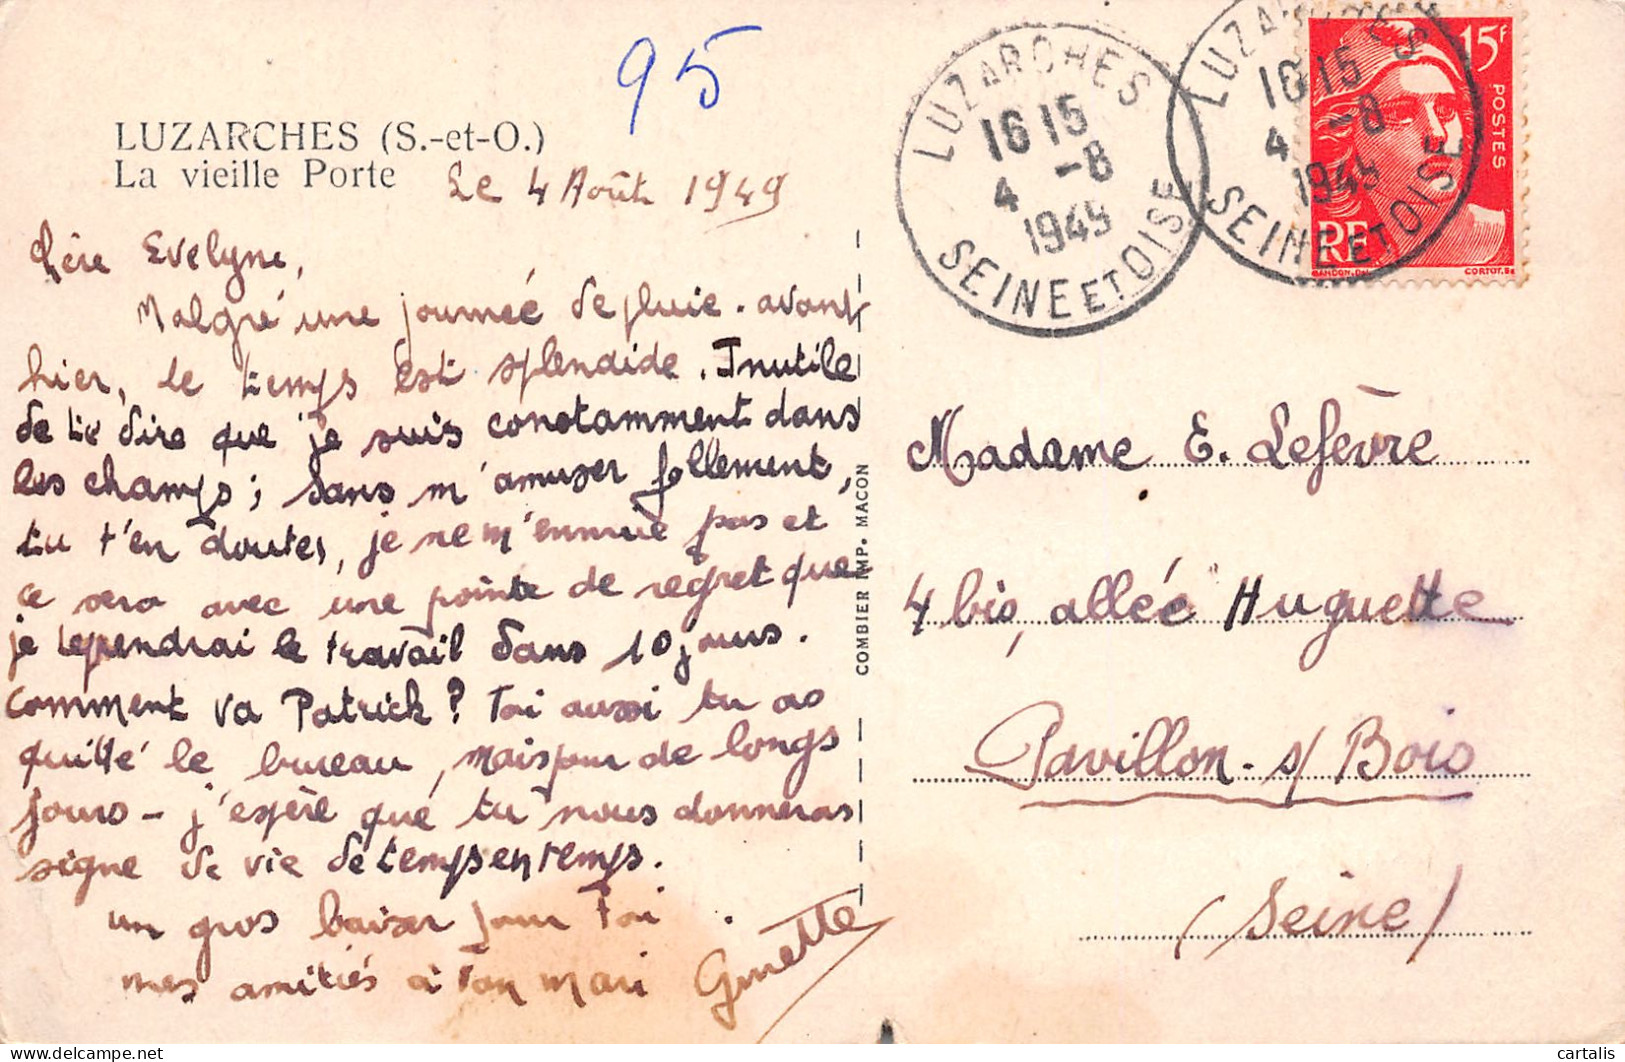 95
LUZARCHES (S.-et-O.)
La vieille Porte
Le 4 Août 1949
Chère Evelyne,
Malgré une journée de pluie. avant
hier, le temps est splendide. Inutile
de te dire que je suis constamment dans
les champs; sans m'amuser follement,
tu t'en doutes, je ne m'ennuie pas et
ce sera avec une pointe de regret que
je reprendrai le travail dans 10 jours.
Comment va Patrick? Toi aussi tu as
quitté le bureau, mais pour de longs
jours - j'espère que tu nous donneras
signe de vie de temps en temps.
un gros baiser pour Toi.
mes amitiés à Ton mari
Ginette
COMBIER IMP. MACON
LUZARCHES
16 15
4 -8
1949
SEINE ET OISE
LUZARCHES
16 15
4 -8
1949
SEINE ET OISE
15F
POSTES
RF
GANDON.Del
CORTOT.Sc
Madame E. Lefèvre
4 bis, allée Huguette
Pavillon. s/ Bois
(Seine)
cartalis